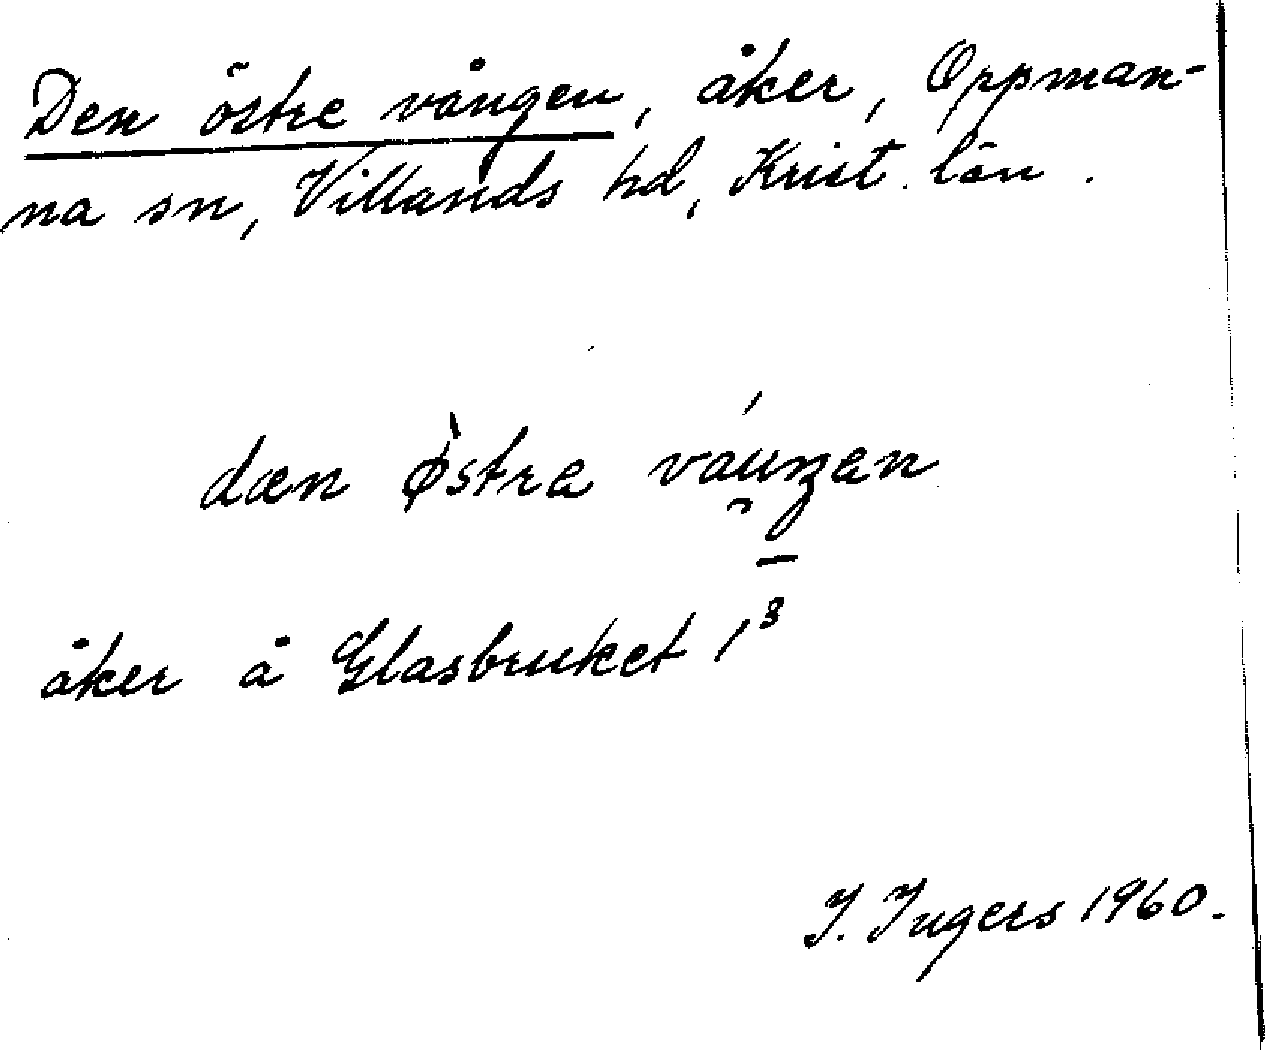 Den östre vången, åker, Oppman-
na sn, Villands hd, Krist. län.
dæn østra váu̯ŋən
åker å Glasbruket 1⁸
I. Ingers 1960.